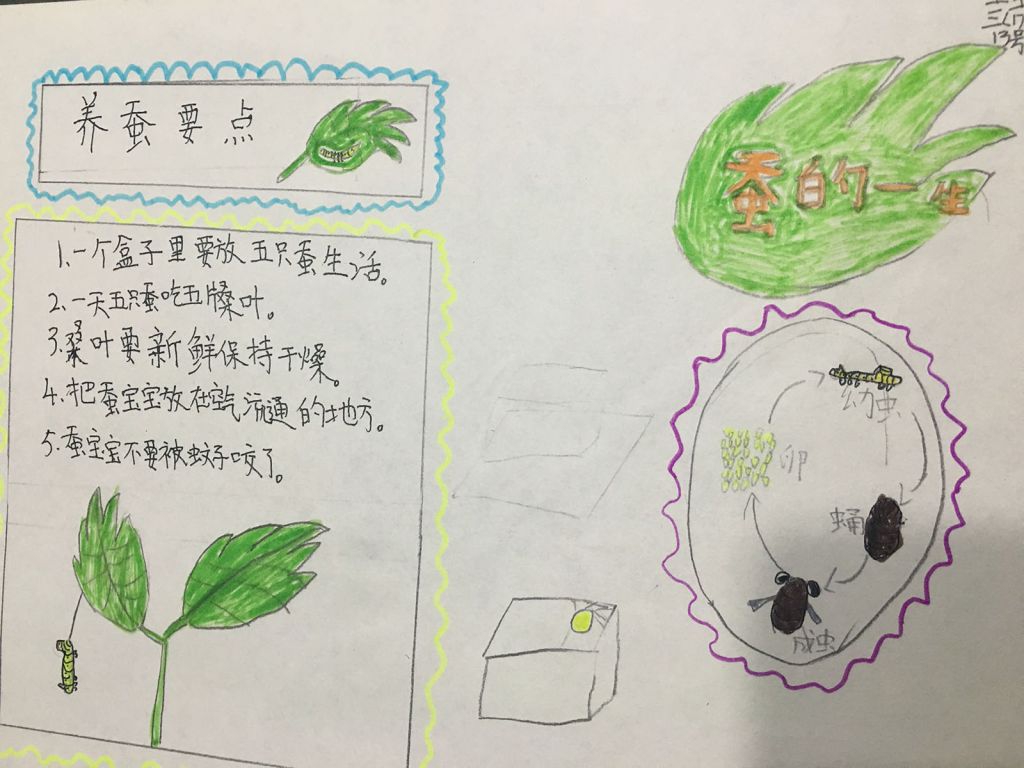 养蚕要点
1.一个盒子里要放五只蚕生活。
2.一天五只蚕吃五牒桑叶。
3.桑叶要新鲜保持干燥。
4.把蚕宝宝放在空气流通的地方。
5.蚕宝宝不要被蚊子咬了。
13号
蚕的一生
幼虫
卵
蛹
成虫